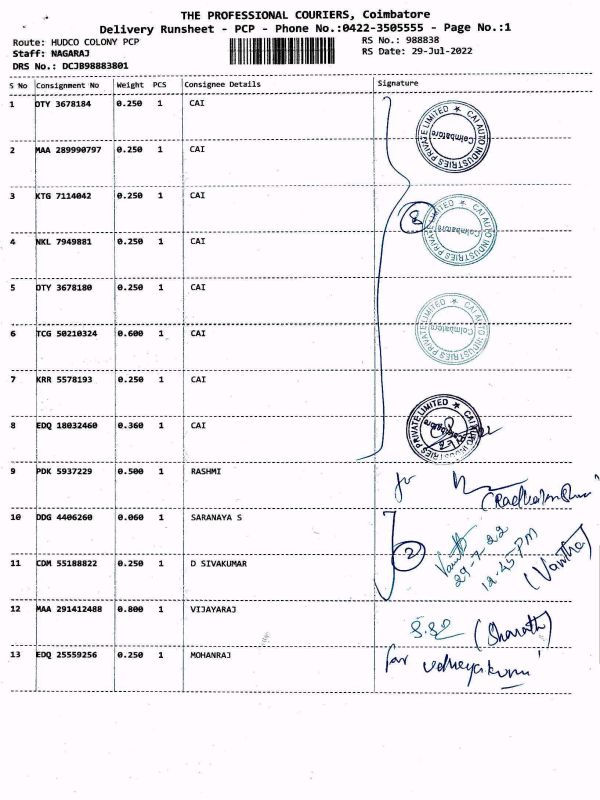 THE PROFESSIONAL COURIERS, Coimbatore
Delivery Runsheet - PCP - Phone No.:0422-3505555 - Page No.:1
Route: HUDCO COLONY PCP
Staff: NAGARAJ
DRS No.: DCJB98883801
RS No.: 988838
RS Date: 29-Jul-2022
S No Consignment No Weight PCS Consignee Details Signature
1 OTY 3678184 0.250 1 CAI
2 MAA 289990797 0.250 1 CAI
3 KTG 7114042 0.250 1 CAI
4 NKL 7949881 0.250 1 CAI
5 OTY 3678180 0.250 1 CAI
6 TCG 50210324 0.600 1 CAI
7 KRR 5578193 0.250 1 CAI
8 EDQ 18032460 0.360 1 CAI
9 PDK 5937229 0.500 1 RASHMI
10 DDG 4406260 0.060 1 SARANAYA S
11 CDM 55188822 0.250 1 D SIVAKUMAR
12 MAA 291412488 0.800 1 VIJAYARAJ
13 EDQ 25559256 0.250 1 MOHANRAJ
CAI AUTO INDUSTRIES PRIVATE LIMITED ★
Coimbatore
8
CAI AUTO INDUSTRIES PRIVATE LIMITED ★
Coimbatore
CAI AUTO INDUSTRIES PRIVATE LIMITED ★
Coimbatore
CAI AUTO INDUSTRIES PRIVATE LIMITED ★
Coimbatore
2
29-7-22
12.45 PM
(Sharath)
for